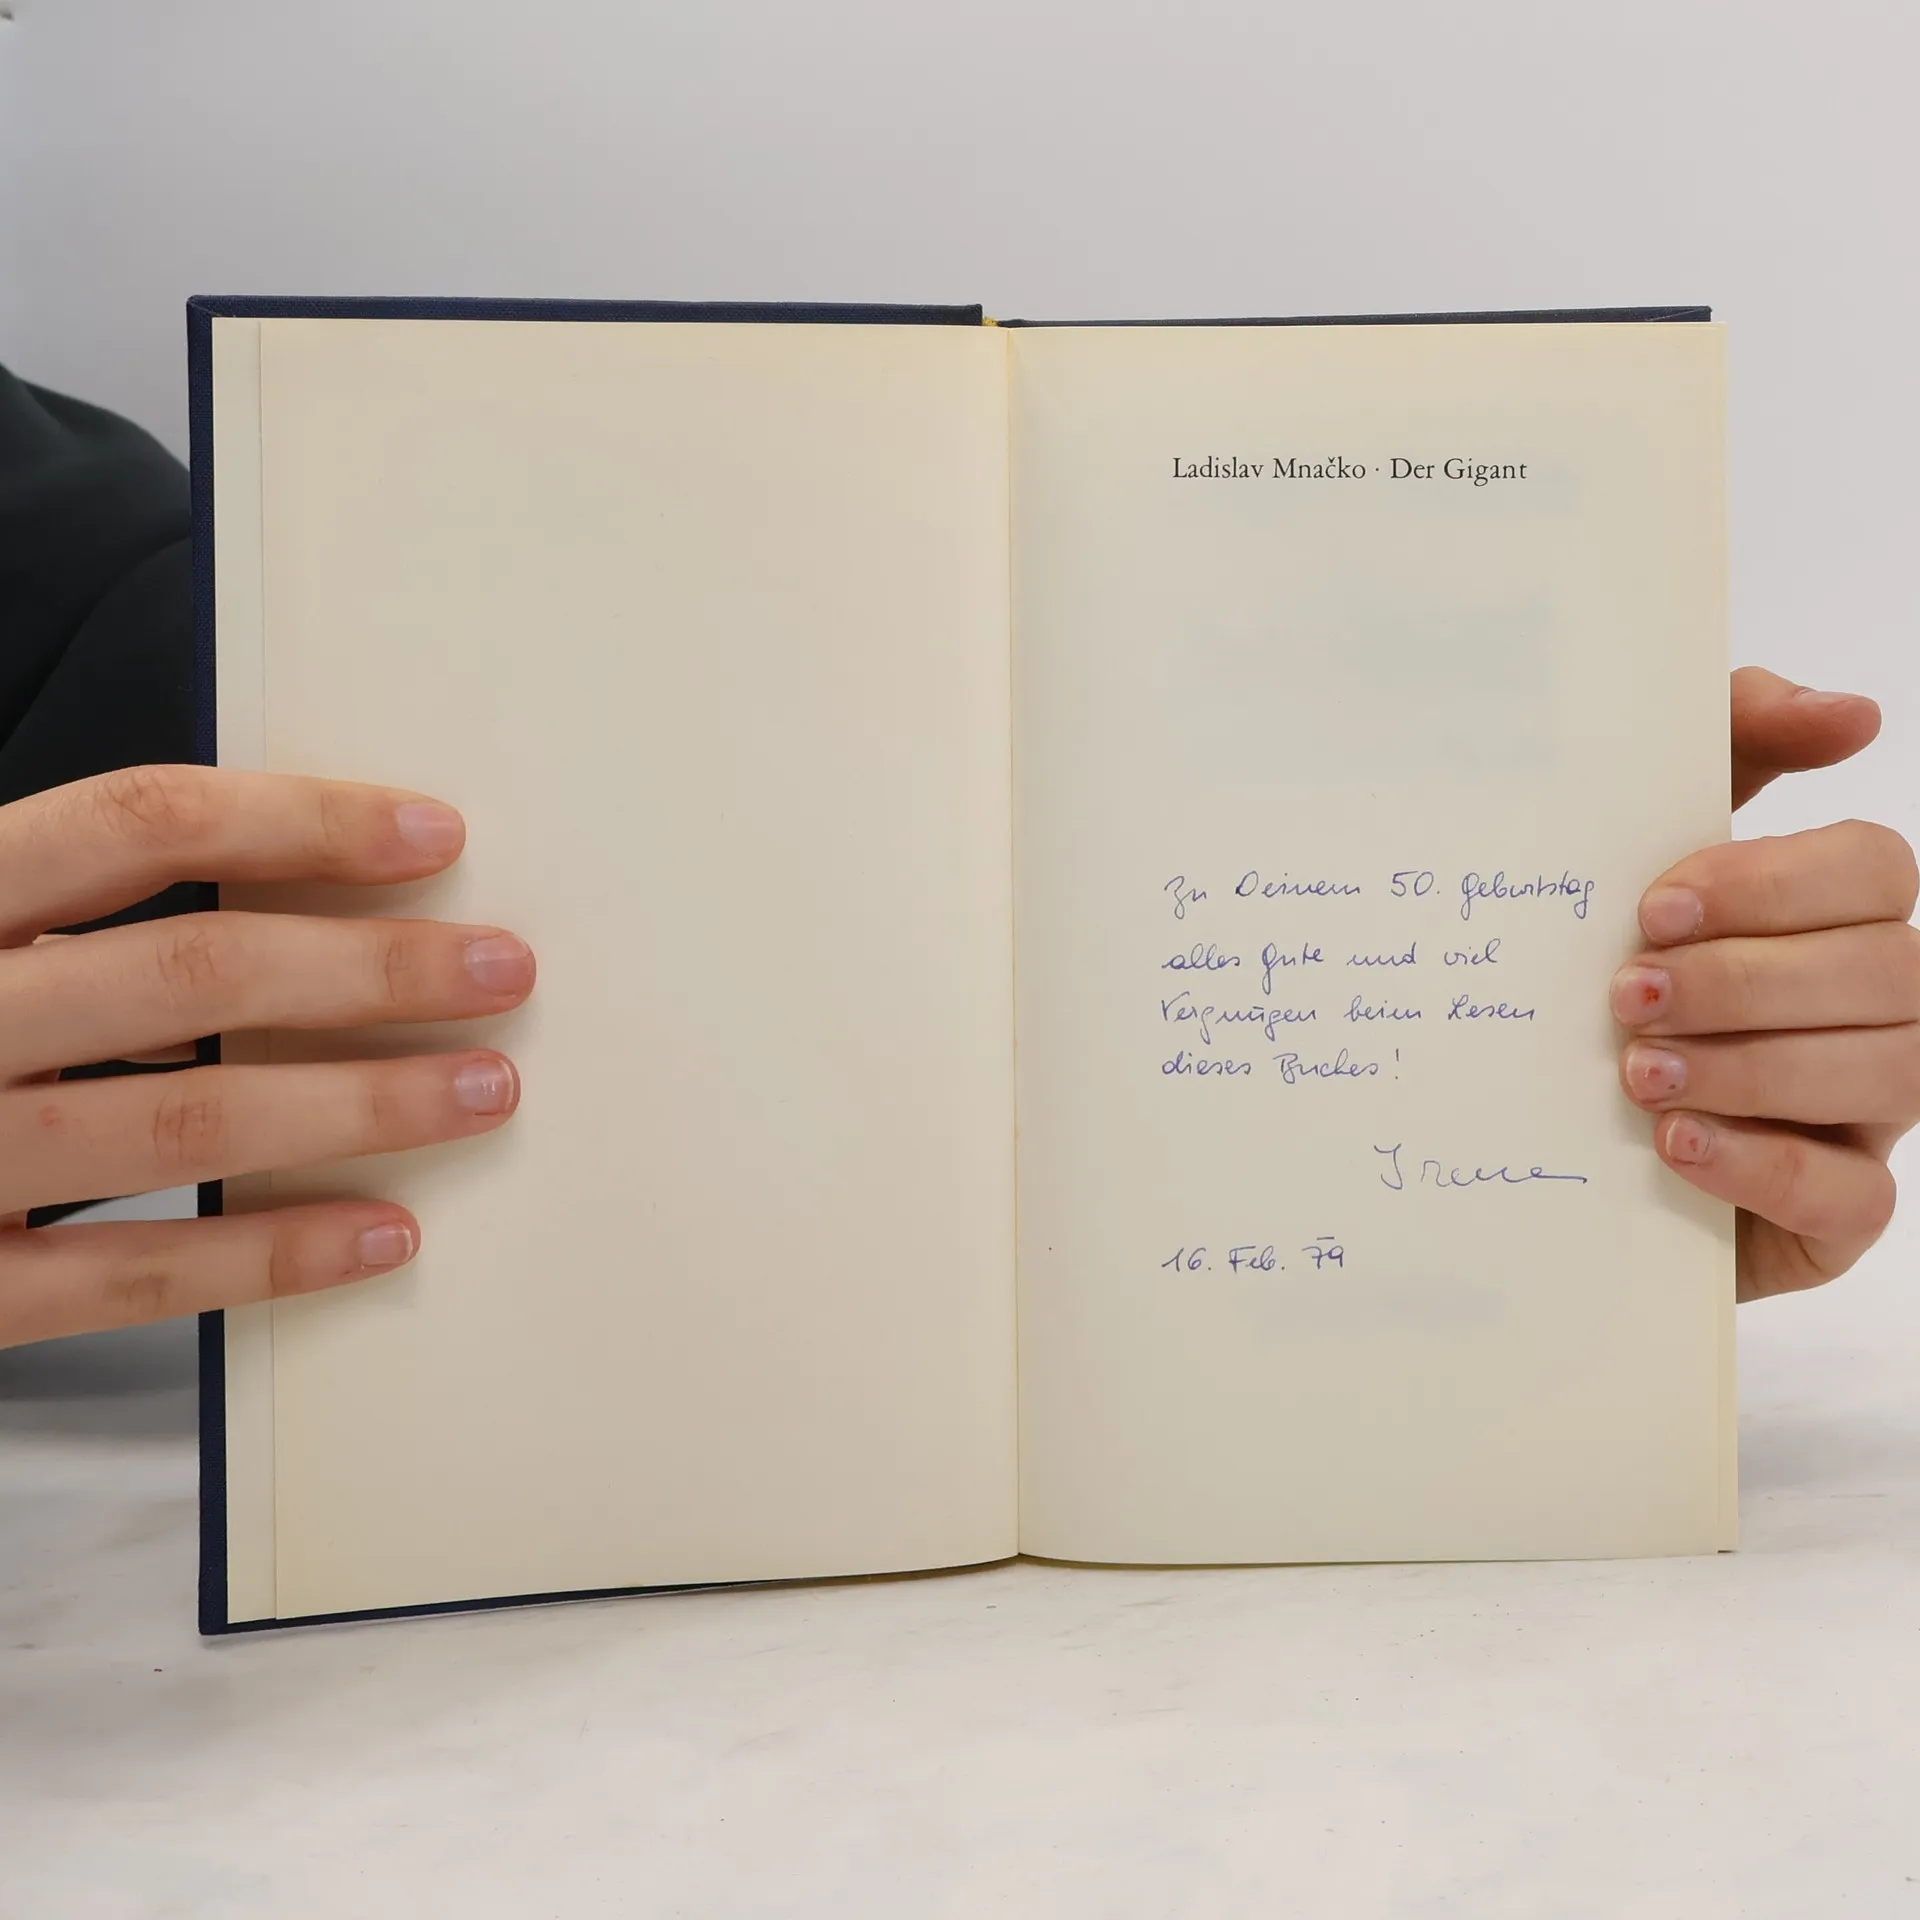 Ladislav Mnačko · Der Gigant
Zu Deinem 50. Geburtstag
alles Gute und viel
Vergnügen beim Lesen
dieses Buches!
Irene
16. Feb. 79